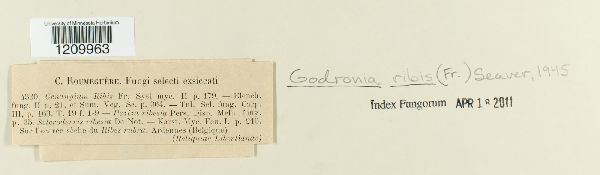 University of Minnesota Herbarium
1209963
C. ROUMEGUÈRE. Fungi selecti exsiccati
5320. Cenangium Ribis Fr. Syst myc. II p. 179. — Elench.
fung. II p. 21, et Sum. Veg. Sc. p. 364. — Tul. Sel. fung. Carp.
III, p. 163. T. 19 f. 1-9 — Peziza ribesia Pers. Disp. Meth. fung.
p. 35. Scleroderris ribesia De Not. — Karst. Myc. Fen. I. p. 215.
Sur l'écorce sèche du Ribes rubra. Ardennes (Belgique)
(Reliquiae Libertianae)
Godronia ribis (Fr.) Seaver, 1945
Index Fungorum APR 18 2011